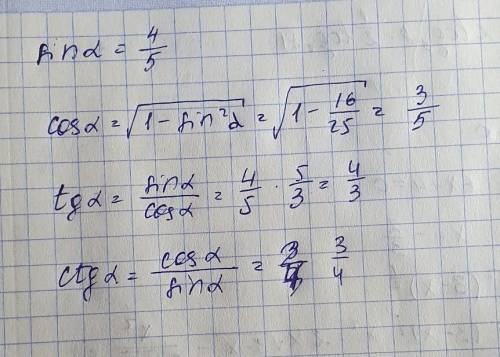 sin α = 4/5
cos α = √(1 − sin²α) = √(1 − 16/25) = 3/5
tg α = sin α/cos α = 4/5 · 5/3 = 4/3
ctg α = cos α/sin α = 3/4